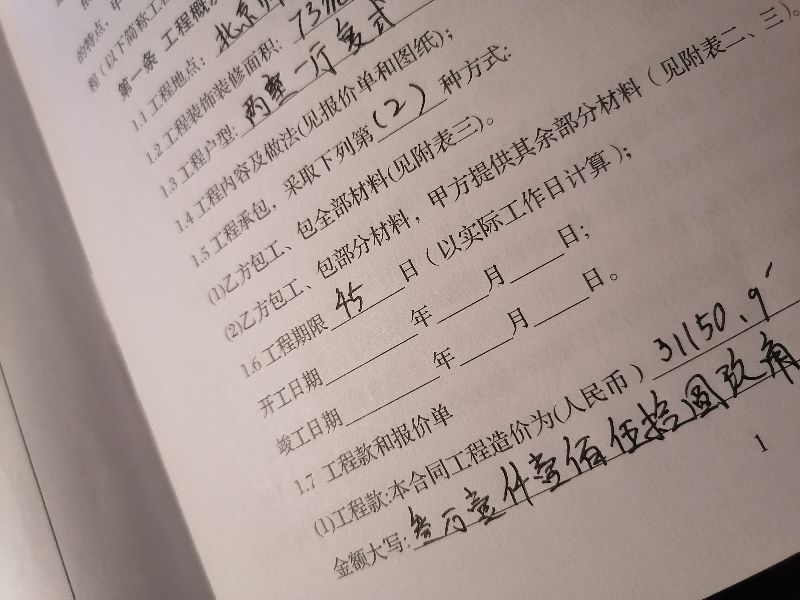 的特点,甲
程(以下简称工程
第一条 工程概
1.1 工程地点: 北京
1.2 工程装饰装修面积: 73
1.3 工程户型: 两室一厅复式
1.4 工程内容及做法(见报价单和图纸);
1.5 工程承包,采取下列第(2)种方式:
(1)乙方包工、包全部材料(见附表三)。
(2)乙方包工、包部分材料,甲方提供其余部分材料(见附表二、三)。
1.6 工程期限 45 日(以实际工作日计算);
开工日期 年 月 日;
竣工日期 年 月 日。
1.7 工程款和报价单
(1)工程款:本合同工程造价为(人民币) 31150.9
金额大写: 叁万壹仟壹佰伍拾圆玖角
1